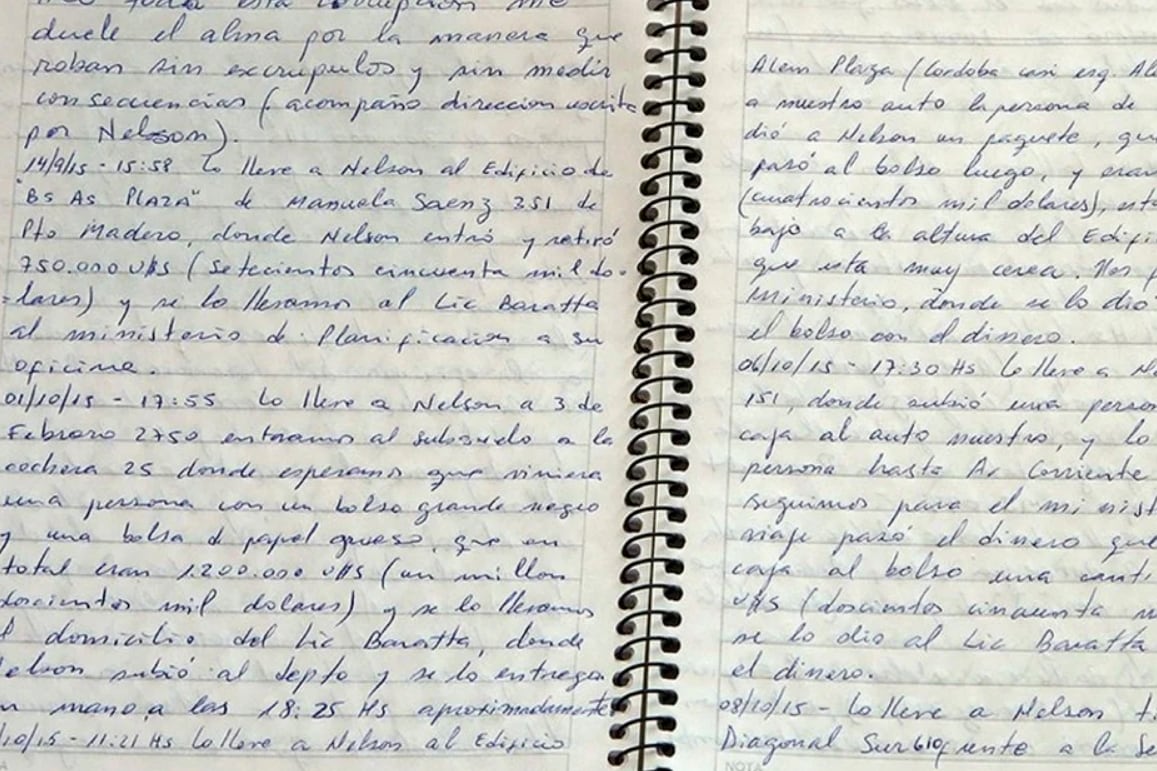 duele el alma por la manera que
roban sin excrupulos y sin medir
consecuencias (acompaño direccion escrita
por Nelson).
14/9/15 - 15:58 Lo lleve a Nelson al Edificio de
"Bs As PLAZA" de Manuela Saenz 351 de
Pto Madero, donde Nelson entró y retiró
750.000 U$S (setecientos cincuenta mil do-
=lares) y se lo llevamos al Lic Baratta
al ministerio de Planificacion a su
oficina.
01/10/15 - 17:55 Lo lleve a Nelson a 3 de
Febrero 2750 entramos al subsuelo a la
cochera 25 donde esperamos que viniera
una persona con un bolso grande negro
y una bolsa de papel grueso, que en
total eran 1.200.000 U$S (un millon
doscientos mil dolares) y se lo llevamos
domicilio del Lic Baratta, donde
elson subió al depto y se lo entrego
mano, a las 18:25 Hs aproximadamente
/10/15 - 11:21 Hs Lo lleve a Nelson al Edificio
Alem Plaza (Cordoba casi esq. Ale
a nuestro auto la persona de
dió a Nelson un paquete, qu
pasó al bolso luego, y eran
(cuatrocientos mil dolares), est
bajo a la altura del Edifi
que esta muy cerca. Nos
Ministerio, donde se lo dio
el bolso con el dinero.
06/10/15 - 17:30 Hs Lo lleve a Ne
151, donde subió una person
caja al auto nuestro, y lo
persona hasta Av Corriente
seguimos para el minist
viaje pasó el dinero que
caja al bolso una canti
U$S (doscientos cincuenta m
se lo dio al Lic Baratta
el dinero.
08/10/15 - Lo lleve a Nelson
Diagonal Sur 610 frente a la Se
NOTA